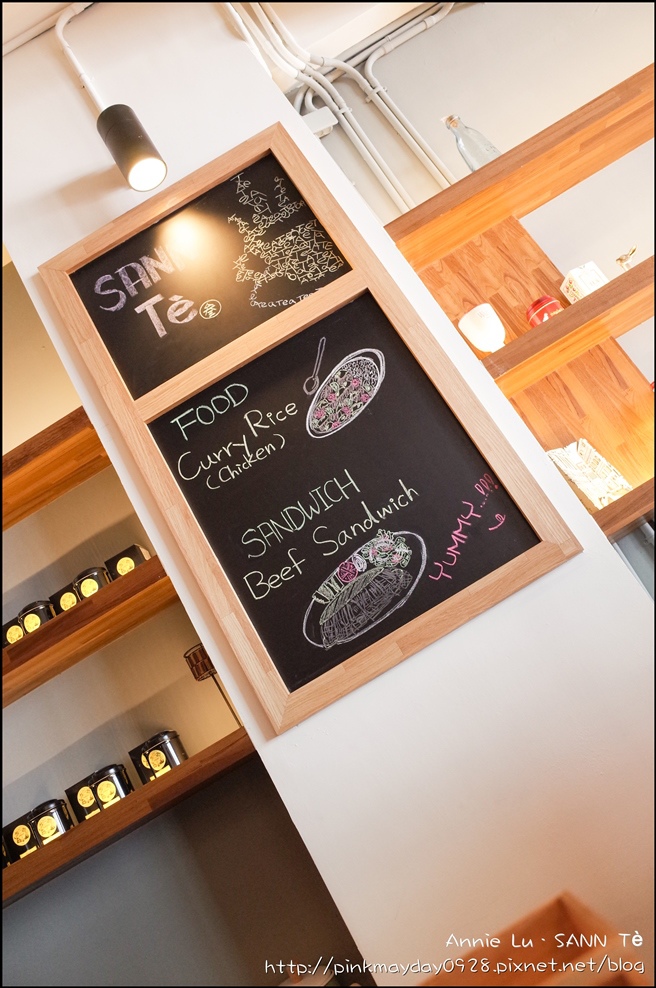 SANN
Tè
FOOD
Curry Rice
(Chicken)
SANDWICH
Beef Sandwich
YUMMY...!!!
Annie Lu · SANN Tè
http://pinkmayday0928.pixnet.net/blog